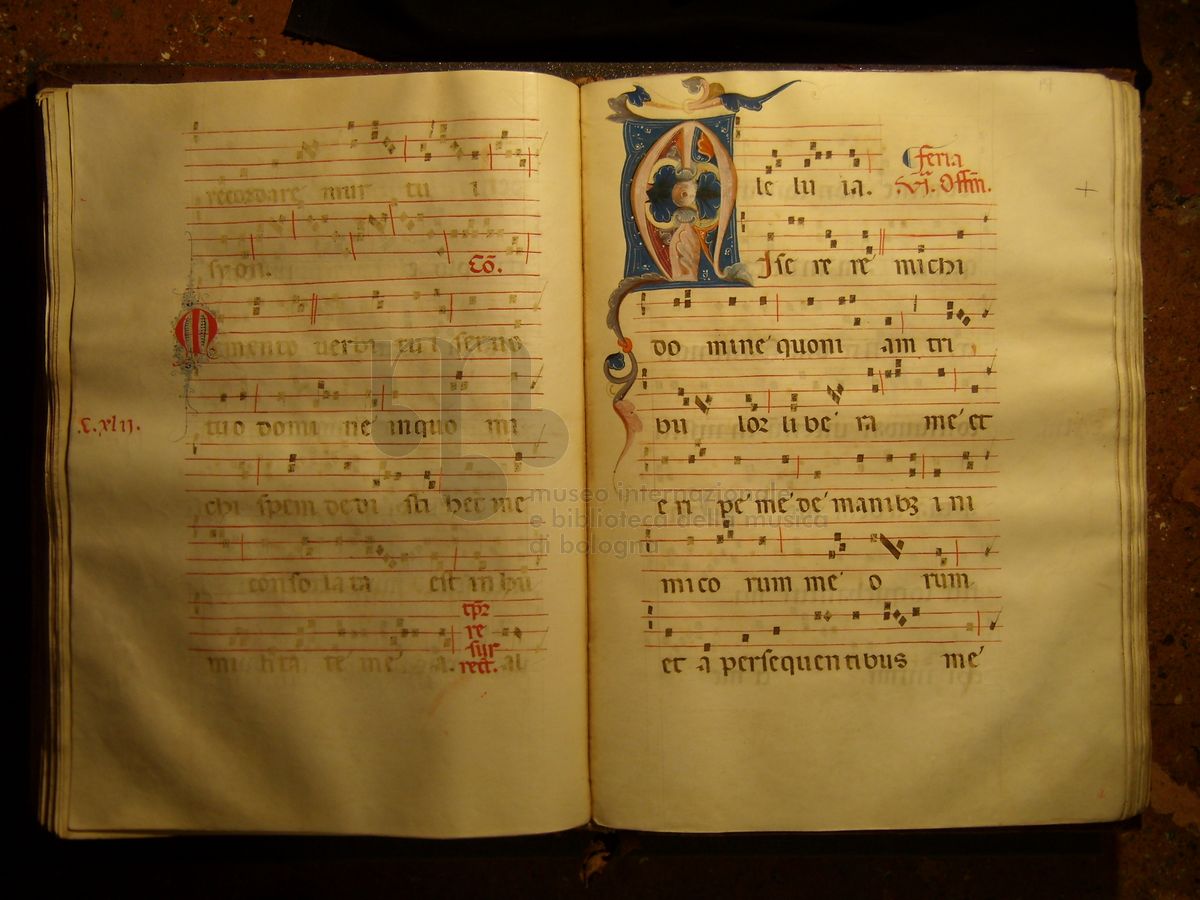 recordare mur tu i
syon. Co.
Emento verbi tu i servo
tuo domi ne inquo mi
C. xlij.
chi spem dedi sti hec me
consolata est in hu
mi lita te me a. al
tpr
re
sur
rect.
le lu ia.
feria
vj. Offm.
Ise re re michi
do mine quoni am tri
bu lor li be ra me et
e ri pe me de manibz i ni
mico rum me o rum
et a persequentibus me
museo internazionale
e biblioteca della musica
di bologna